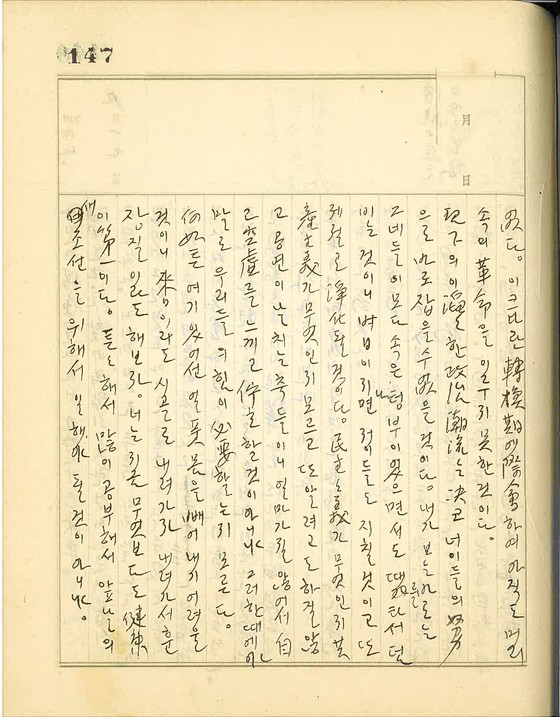 147
月
日
없다. 이 크다란 轉換期에 際會하여 아직도 머리
속의 革命을 일우지 못한 것이다.
現下의 이 濁한 政治潮流는 決코 너이들의 努力
으로 바로 잡을 수 없을 것이다. 내가 보는 바로는
그네들이 모다 속은 텅 부이 있으면서도 때를 타서 덤
비는 것이니 밤이 되면 저이들도 지칠 것이고 또
제절로 淨化될 것이다. 民主主義가 무엇인지 共
產主義가 무엇인지 모르고 또 알려고도 하질 않
고 공연이 날치는 축들이니 얼마 가질 않어서 自
己 空虛를 느끼고 停止할 것이 아니냐 그러한 때에야
말로 우리들의 힘이 必要할는지 모른다.
何如튼 여기 있어선 일 못 몸을 빼어내기 어려울
것이니 來日이라도 시골로 내려가라 내려가서 훈
장질이라도 해보라. 너는 지금 무엇보다도 健康
이 第一이다. 튼튼해서 많이 공부해서 앞날의
새 조선을 위해서 일해야 될 것이 아니냐.